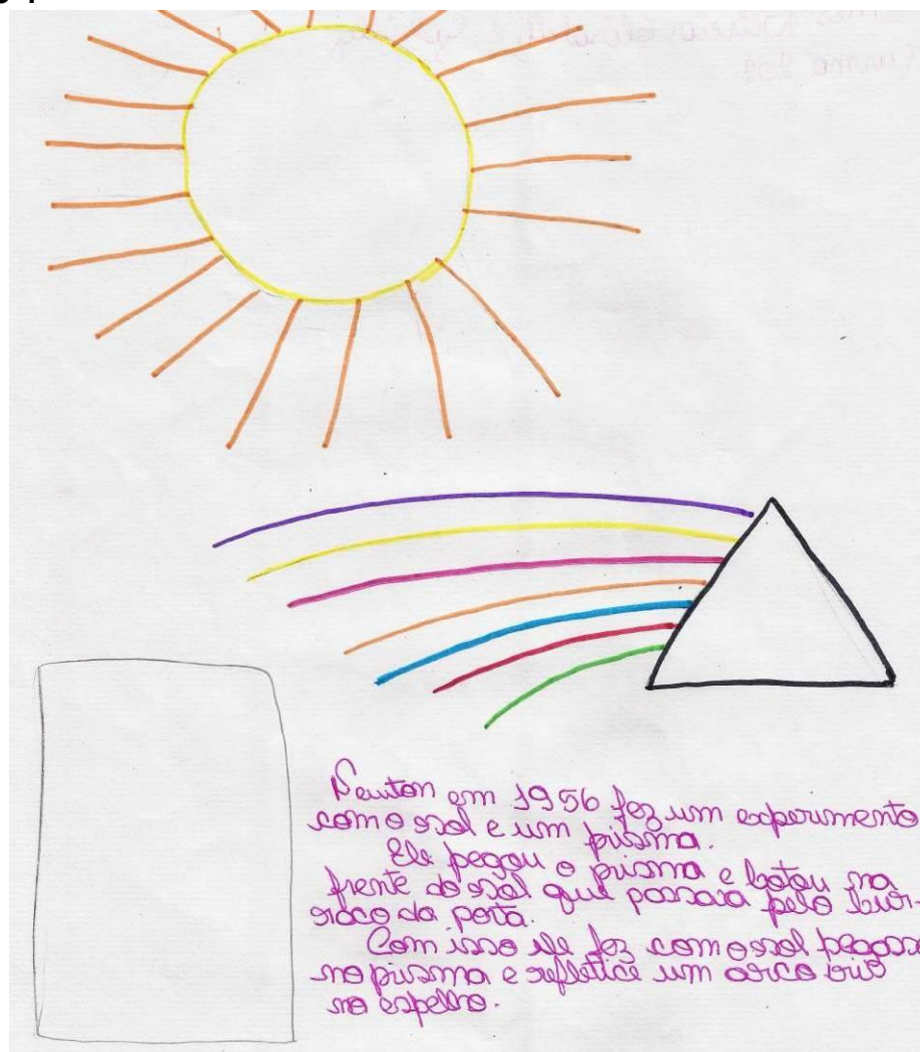 Newton em 1956 fez um experimento
com o sol e um prisma.
Ele pegou o prisma e botou na
frente do sol que passava pelo bur-
raco da porta.
Com isso ele fez com o sol pegasse
no prisma e refletice um arco iris
no espelho.